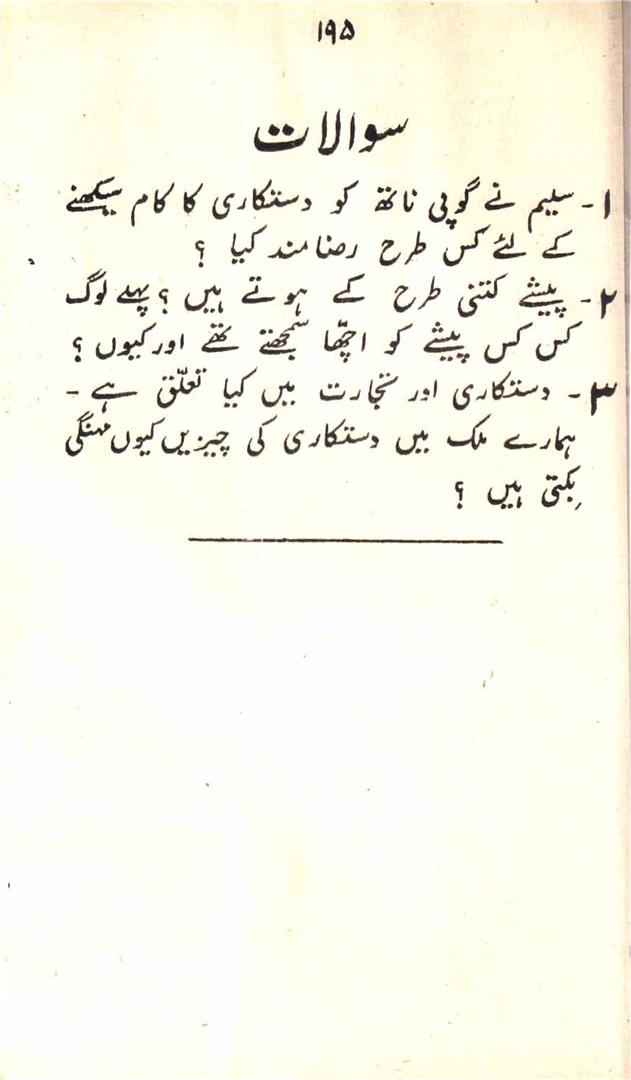 ۱۹۵
سوالات
۱- سلیم نے گوپی ناتھ کو دستکاری کا کام سیکھنے
کے لئے کس طرح رضامند کیا ؟
۲- پیشے کتنی طرح کے ہوتے ہیں ؟ پہلے لوگ
کس کس پیشے کو اچّھا سمجھتے تھے اور کیوں ؟
۳- دستکاری اور تجارت میں کیا تعلّق ہے -
ہمارے ملک میں دستکاری کی چیزیں کیوں مہنگی
بِکتی ہیں ؟